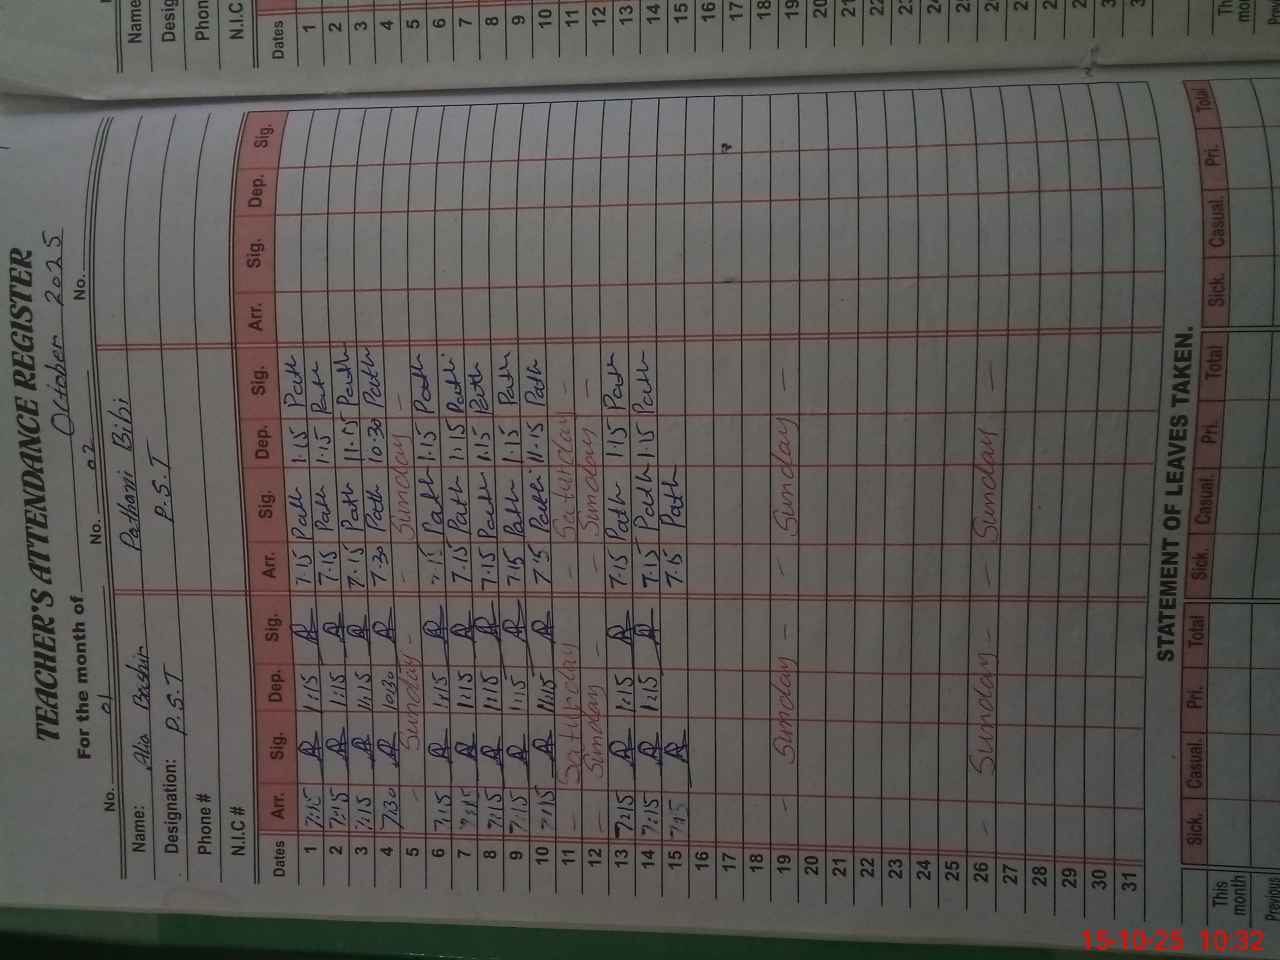 TEACHER'S ATTENDANCE REGISTER
For the month of October 2025
No. 01 No. 02 No.
Name: Alia Bashir Pathani Bibi
Designation: P.S.T P.S.T
Phone #
N.I.C #
Dates Arr. Sig. Dep. Sig. Arr. Sig. Dep. Sig. Arr. Sig. Dep. Sig.
1 7:15 1:15 7.15 Path 1.15 Path
2 7:15 1:15 7.15 Path 1.15 Path
3 7:15 11:15 7.15 Path 11.15 Path
4 7:30 10:30 7.30 Path 10.30 Path
5 - Sunday - - Sunday -
6 7:15 1:15 7.15 Path 1.15 Path
7 7:15 1:15 7.15 Path 1.15 Path
8 7:15 1:15 7.15 Path 1.15 Path
9 7:15 1:15 7.15 Path 1.15 Path
10 7:15 11:15 7.15 Path 11.15 Path
11 - Saturday - Saturday -
12 - Sunday - - Sunday -
13 7:15 1:15 7.15 Path 1.15 Path
14 7:15 1:15 7.15 Path 1.15 Path
15 7:15 7.15 Path
16
17
18
19 - Sunday - - Sunday -
20
21
22
23
24
25
26 - Sunday - - Sunday -
27
28
29
30
31
STATEMENT OF LEAVES TAKEN.
Sick. Casual. Pri. Total Sick. Casual. Pri. Total Sick. Casual. Pri. Total
This month
Previous
Name
Phon
N.I.C
Dates
1
2
3
4
5
6
7
8
9
10
11
12
13
14
15
16
17
18
19
20
15-10-25 10:32